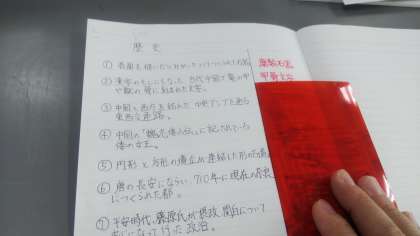 歴史
① 表面を
② 漢字のもとになった、古代中国で亀の甲
や獣の骨に刻まれた文字。
甲骨文字
③ 中国と西方を結んだ中央アジアを通る
東西交通路。
④ 中国の「魏志倭人伝」に記されている
倭の女王。
⑤ 円形と方形の墳丘が連結した形の古墳
⑥ 唐の長安にならい、710年に現在の奈良
につくられた都。
⑦ 平安時代、藤原氏が摂政・関白について
行った政治。